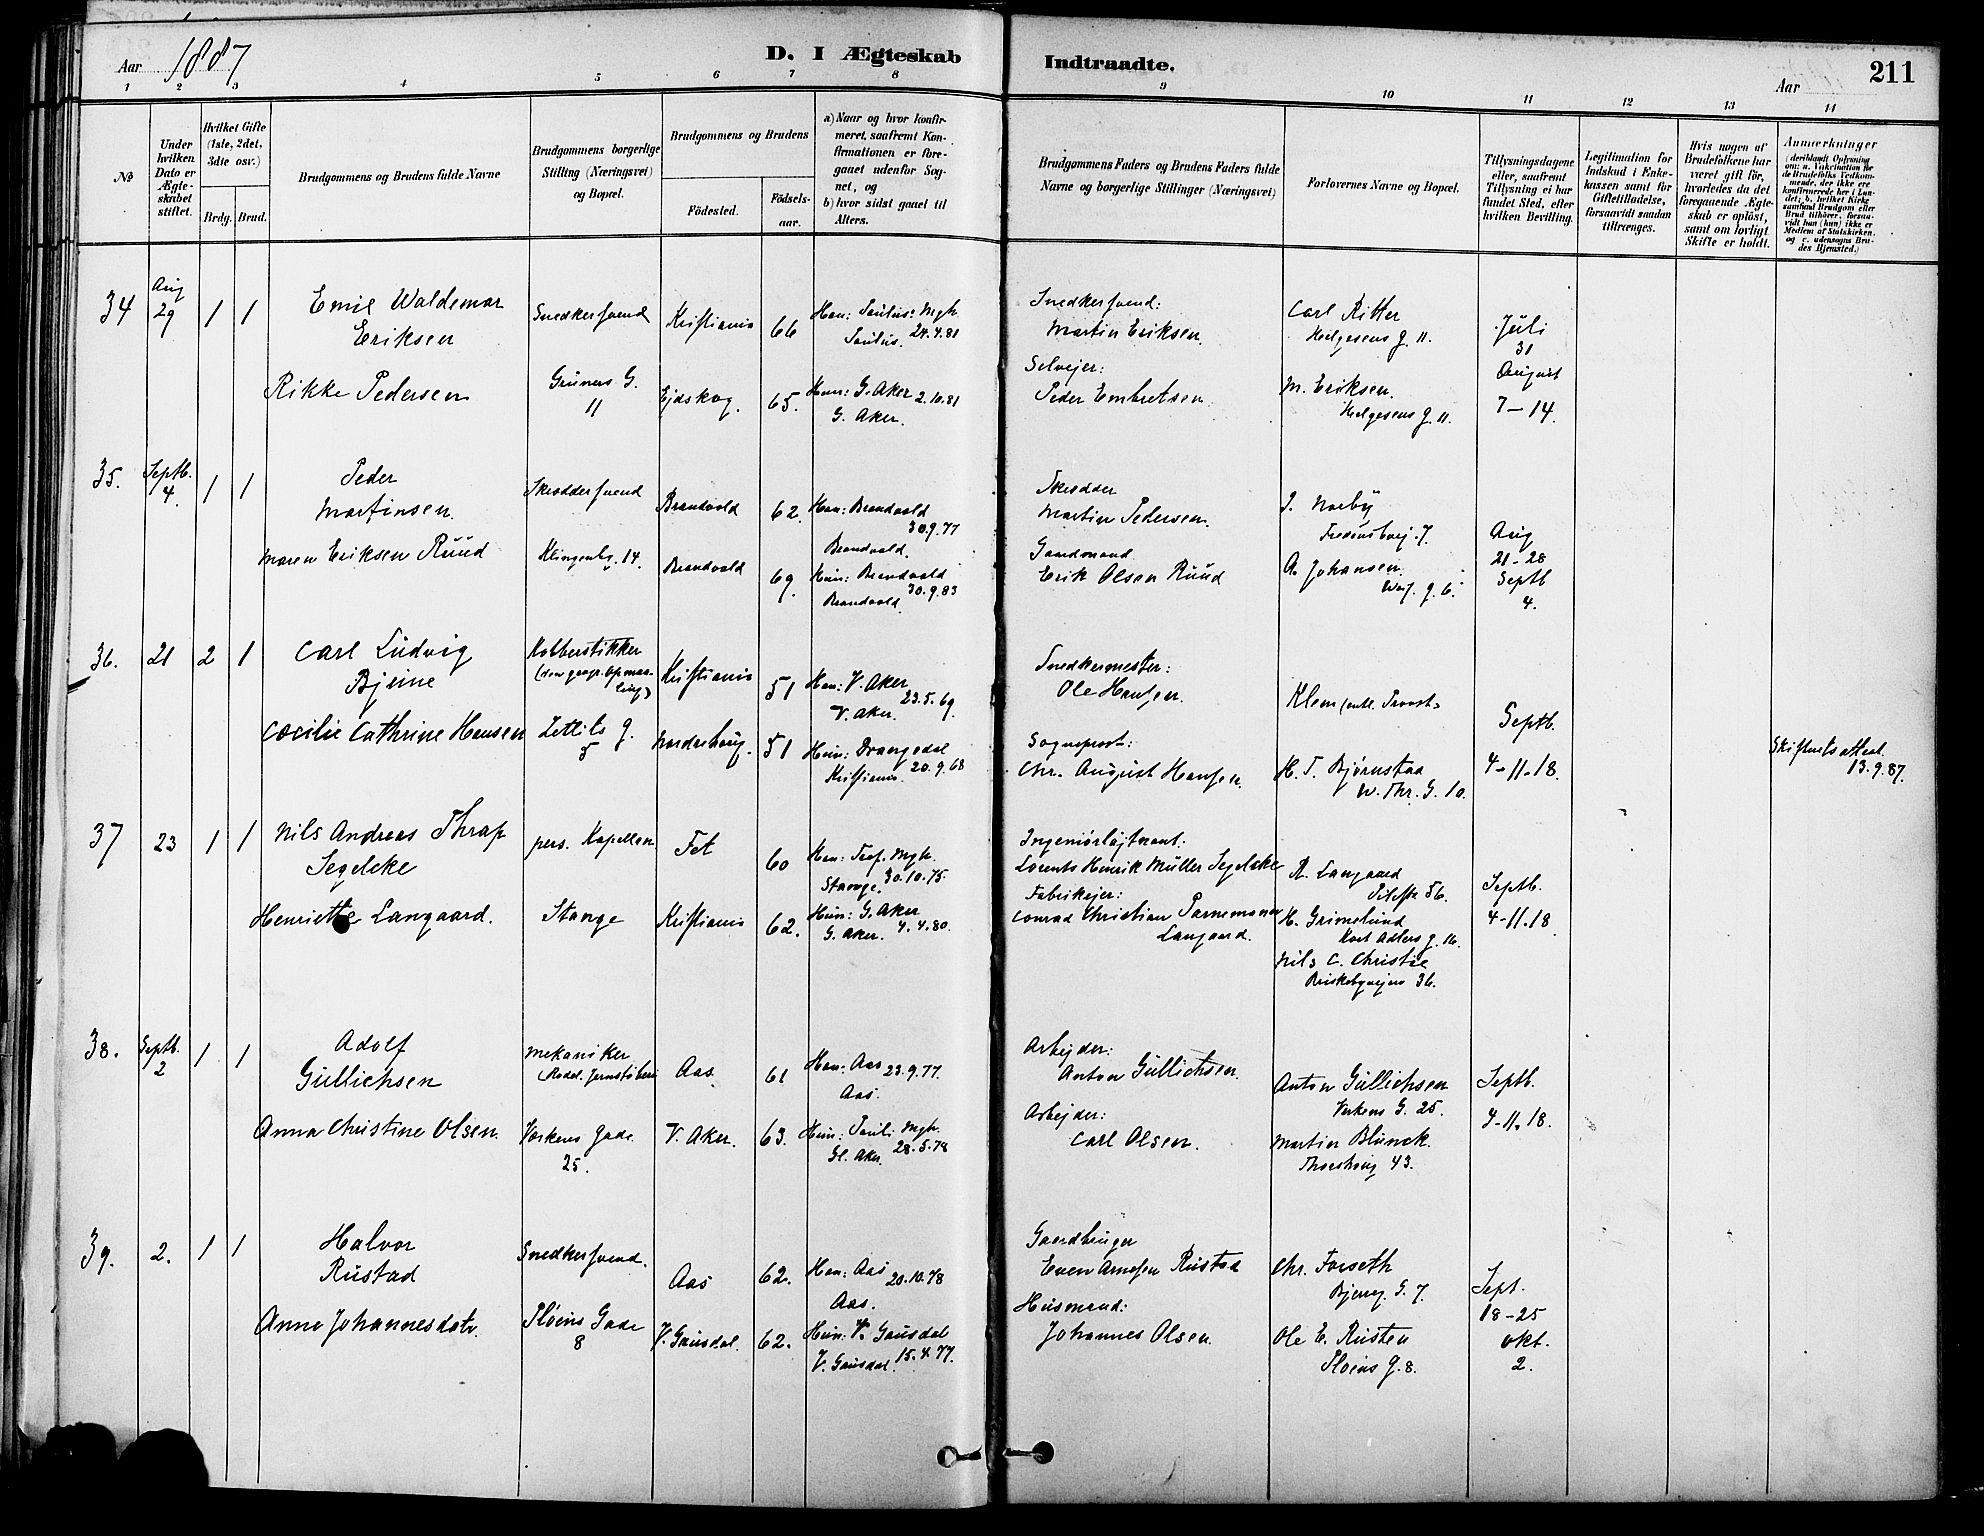 Aar 1887
D. I Ægteskab
Indtraadte.
Aar
211
1 2 3 4 5 6 7 8 9 10 11 12 13 14
№
Under hvilken Dato er Ægteskabet stiftet.
Hvilket Gifte (1ste, 2det, 3die osv.)
Brdg. Brud.
Brudgommens og Brudens fulde Navne
Brudgommens borgerlige Stilling (Næringsvei) og Bopæl.
Brudgommens og Brudens
Födested.
Födselsaar.
a) Naar og hvor konfirmeret, saafremt Konfirmationen er foregaaet udenfor Sognet, og
b) hvor sidst gaaet til Alters.
Brudgommens Faders og Brudens Faders fulde Navne og borgerlige Stillinger (Næringsvei)
Forlovernes Navne og Bopæl.
Tillysningsdagene eller, saafremt Tillysning ei har fundet Sted, efter hvilken Bevilling.
Legitimation for Indskud i Enkekassen samt for Giftetilladelse, forsaavidt saadan tiltrænges.
Hvis nogen af Brudefolkene har været gift för, hvorledes da det foregaaende Ægteskab er oplöst, samt om lovligt Skifte er holdt.
Anmærkninger (deriblandt Oplysning om: a. Vakcination for de Brudefolks Vedkommende, der ikke ere konfirmerede her i Landet; b. hvilket Kirkesamfund Brudgom eller Brud tilhörer, forsaavidt han (hun) ikke er Medlem af Statskirken, og c. udensogns Brudes Hjemsted.)
34
Aug
29
1 1
Emil Waldemar
Eriksen
Snedkersvend
Kristiania
66
Han: Paulus Mgh.
24.4.81
Paulus.
Snedkersvend:
Martin Eriksen.
Carl Ritter
Helgesens g. 11.
Juli
31
Rikke Pedersen
Grüners G.
11
Ejdskog.
65.
Hun: G. Aker 2.10.81
G. Aker.
Selvejer:
Peder Embretsen.
M. Eriksen.
Helgesens g. 11.
August
7–14
35.
Septb.
4.
1 1
Peder
Martinsen.
Skræddersvend
Brandvold
62.
Han: Brandvold
30.9.77
Brandvold.
Skrædder
Martin Pedersen.
J. Norby
Fredensborgv. 7.
Maren Eriksen Ruud
Klingenbg. 14.
Brandvold
69.
Hun: Brandvold
30.9.83
Brandvold.
Gaardmand
Erik Olsen Ruud
A. Johansen
g. 6.
Aug
21-28
Septb
4.
36.
21
2 1
Carl Ludvig
Bjeine
Kobberstikker
(den geogr. Opmaaling)
Kristiania
51
Han: V. Aker
23.5.69.
V. Aker.
Snedkermester:
Ole Hansen.
Klem
Cæcilie Cathrine Hansen
Zetlitz g.
5
Norderhoug.
51
Hun: Drangedal
20.9.68
Kristiania.
Sogneprest:
Chr. August Hansen.
H. T. Bjørnstad
W. Thr. G. 10.
Septb.
4-11-18.
Skifteretsattest.
13.9.87.
37
23
1 1
Nils Andreas Thrap
Segelcke
pers. Kapellan
Fet
60
Han: Tref. Mgh.
30.10.75.
Stange.
Ingeniørløjtnant:
Lorents Henrik Müller Segelcke
R. Langaard
Pilestr. 56.
Septb.
4-11.18.
Henriette Langaard.
Stange
Kristiania
62.
Hun: G. Aker
4.4.80.
G. Aker.
Fabrikejer:
Conrad Christian Parnemann
Langaard.
H. Grimelund
Kort Adlers g. 16.
Nils C. Christie
Briskebyvejen 36.
38.
Septb.
2
1 1
Adolf
Gullichsen
Mekaniker
(Rodel. Jernstøberi
Aas.
61
Han: Aas 23.9.77.
Aas.
Arbejder:
Anton Gullichsen.
Anton Gullichsen
Verkens G. 25.
Septb.
4-11.18.
Anna Christine Olsen.
Værkens Gade.
25.
V. Aker.
63.
Hun: Pauli Mgh.
28.5.78
Gl. Aker.
Arbejder:
Carl Olsen.
Martin Blunck
Thorshaug 43.
39.
2.
1 1
Halvor
Rustad
Snedkersvend.
Aas
62.
Han: Aas 20.10.78
Aas.
Gaardbruger
Even Arnesen Rustad
Chr. Forseth
Bjerreg. G. 7.
Sept.
18-25
Okt.
2.
Anne Johannesdatr.
Pløens Gade
8
V. Gausdal.
62.
Hun: V. Gausdal
15.4.77.
V. Gausdal.
Husmand:
Johannes Olsen.
Ole E. Rusten
Pløens g. 8.